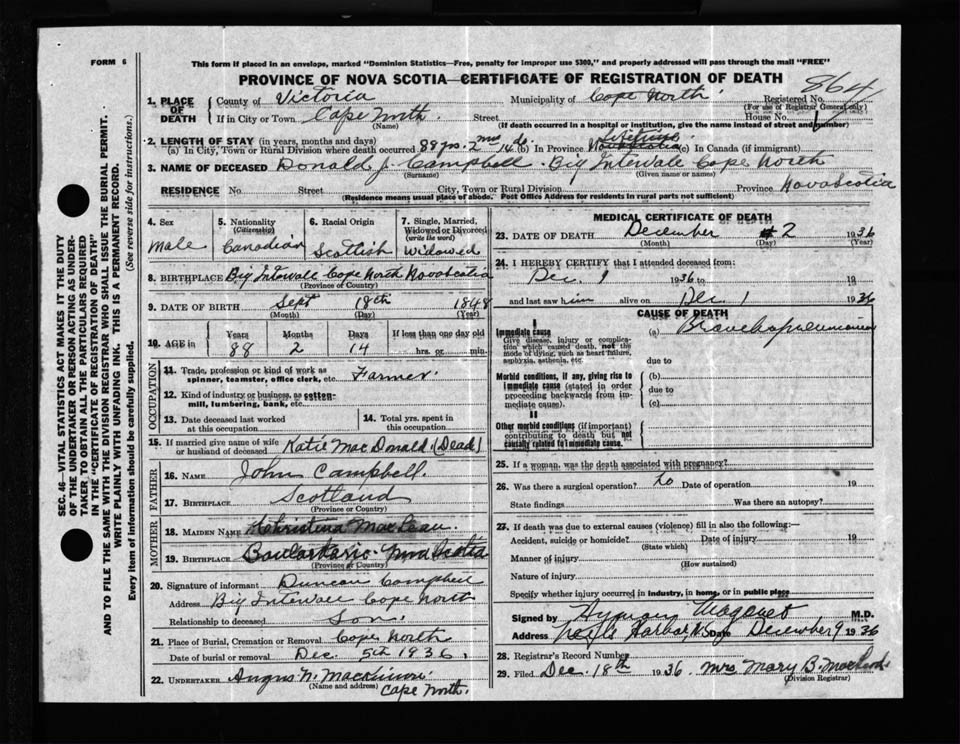 FORM 6
This form if placed in an envelope, marked "Dominion Statistics—Free, penalty for improper use $300," and properly addressed will pass through the mail "FREE"
PROVINCE OF NOVA SCOTIA—CERTIFICATE OF REGISTRATION OF DEATH
864
1. PLACE OF DEATH County of Victoria Municipality of Cape North Registered No.
(For use of Registrar General only)
If in City or Town Cape North. Street House No.
(Name) (If death occurred in a hospital or institution, give the name instead of street and number)
2. LENGTH OF STAY (in years, months and days)
(a) In City, Town or Rural Division where death occurred 88 yrs. 2 mos 14 do. (b) In Province Lifetime (c) In Canada (if immigrant)
3. NAME OF DECEASED Donald J. Campbell. Big Intervale Cape North
(Surname) (Given name or names)
RESIDENCE No Street City, Town or Rural Division Province Nova Scotia
(Residence means usual place of abode. Post Office Address for residents in rural parts not sufficient)
4. Sex Male
5. Nationality (Citizenship) Canadian
6. Racial Origin Scottish
7. Single, Married, Widowed or Divorced (write the word) Widowed
8. BIRTHPLACE Big Intervale Cape North Nova Scotia
(Province or Country)
9. DATE OF BIRTH Sept 18th 1848
(Month) (Day) (Year)
10. AGE in Years Months Days If less than one day old
88 2 14 hrs. or min.
OCCUPATION
11. Trade, profession or kind of work as spinner, teamster, office clerk, etc. Farmer.
12. Kind of industry or business, as cotton-mill, lumbering, bank, etc.
13. Date deceased last worked at this occupation
14. Total yrs. spent in this occupation
15. If married give name of wife or husband of deceased Katie MacDonald (Dead)
FATHER
16. NAME John Campbell
17. BIRTHPLACE Scotland
(Province or Country)
MOTHER
18. MAIDEN NAME Christina MacLean.
19. BIRTHPLACE Nova Scotia
(Province or Country)
20. Signature of informant Duncan Campbell
Address Big Intervale Cape North
Relationship to deceased Son.
21. Place of Burial, Cremation or Removal Cape North
Date of burial or removal Dec. 5th 1936.
22. UNDERTAKER Angus N. MacKinnon
(Name and address) Cape North.
MEDICAL CERTIFICATE OF DEATH
23. DATE OF DEATH December 2 1936
(Month) (Day) (Year)
24. I HEREBY CERTIFY that I attended deceased from:
Dec. 1 1936 to 19
and last saw him alive on Dec 1 1936
CAUSE OF DEATH
I
Immediate cause (a) Bronchopneumonia
Give disease, injury or complication which caused death, not the mode of dying, such as heart failure, asphyxia, asthenia, etc.
due to
Morbid conditions, if any, giving rise to immediate cause (stated in order proceeding backwards from immediate cause).
(b)
due to
(c)
II
Other morbid conditions (if important) contributing to death but not causally related to immediate cause.
25. If a woman, was the death associated with pregnancy?
26. Was there a surgical operation? No Date of operation 19
State findings Was there an autopsy?
27. If death was due to external causes (violence) fill in also the following:—
Accident, suicide or homicide? Date of injury 19
(State which)
Manner of injury
(How sustained)
Nature of injury
Specify whether injury occurred in industry, in home, or in public place
Signed by Hyman M.D.
Address Neils Harbor N.S. Date December 9 1936
28. Registrar's Record Number
29. Filed Dec. 18th 1936 Mrs. Mary B.
(Division Registrar)
SEC. 46—VITAL STATISTICS ACT MAKES IT THE DUTY
OF THE UNDERTAKER OR PERSON ACTING AS UNDER-
TAKER TO OBTAIN ALL THE PARTICULARS REQUIRED
IN THE "CERTIFICATE OF REGISTRATION OF DEATH"
AND TO FILE THE SAME WITH THE DIVISION REGISTRAR WHO SHALL ISSUE THE BURIAL PERMIT.
WRITE PLAINLY WITH UNFADING INK. THIS IS A PERMANENT RECORD.
Every item of information should be carefully supplied. (See reverse side for instructions.)